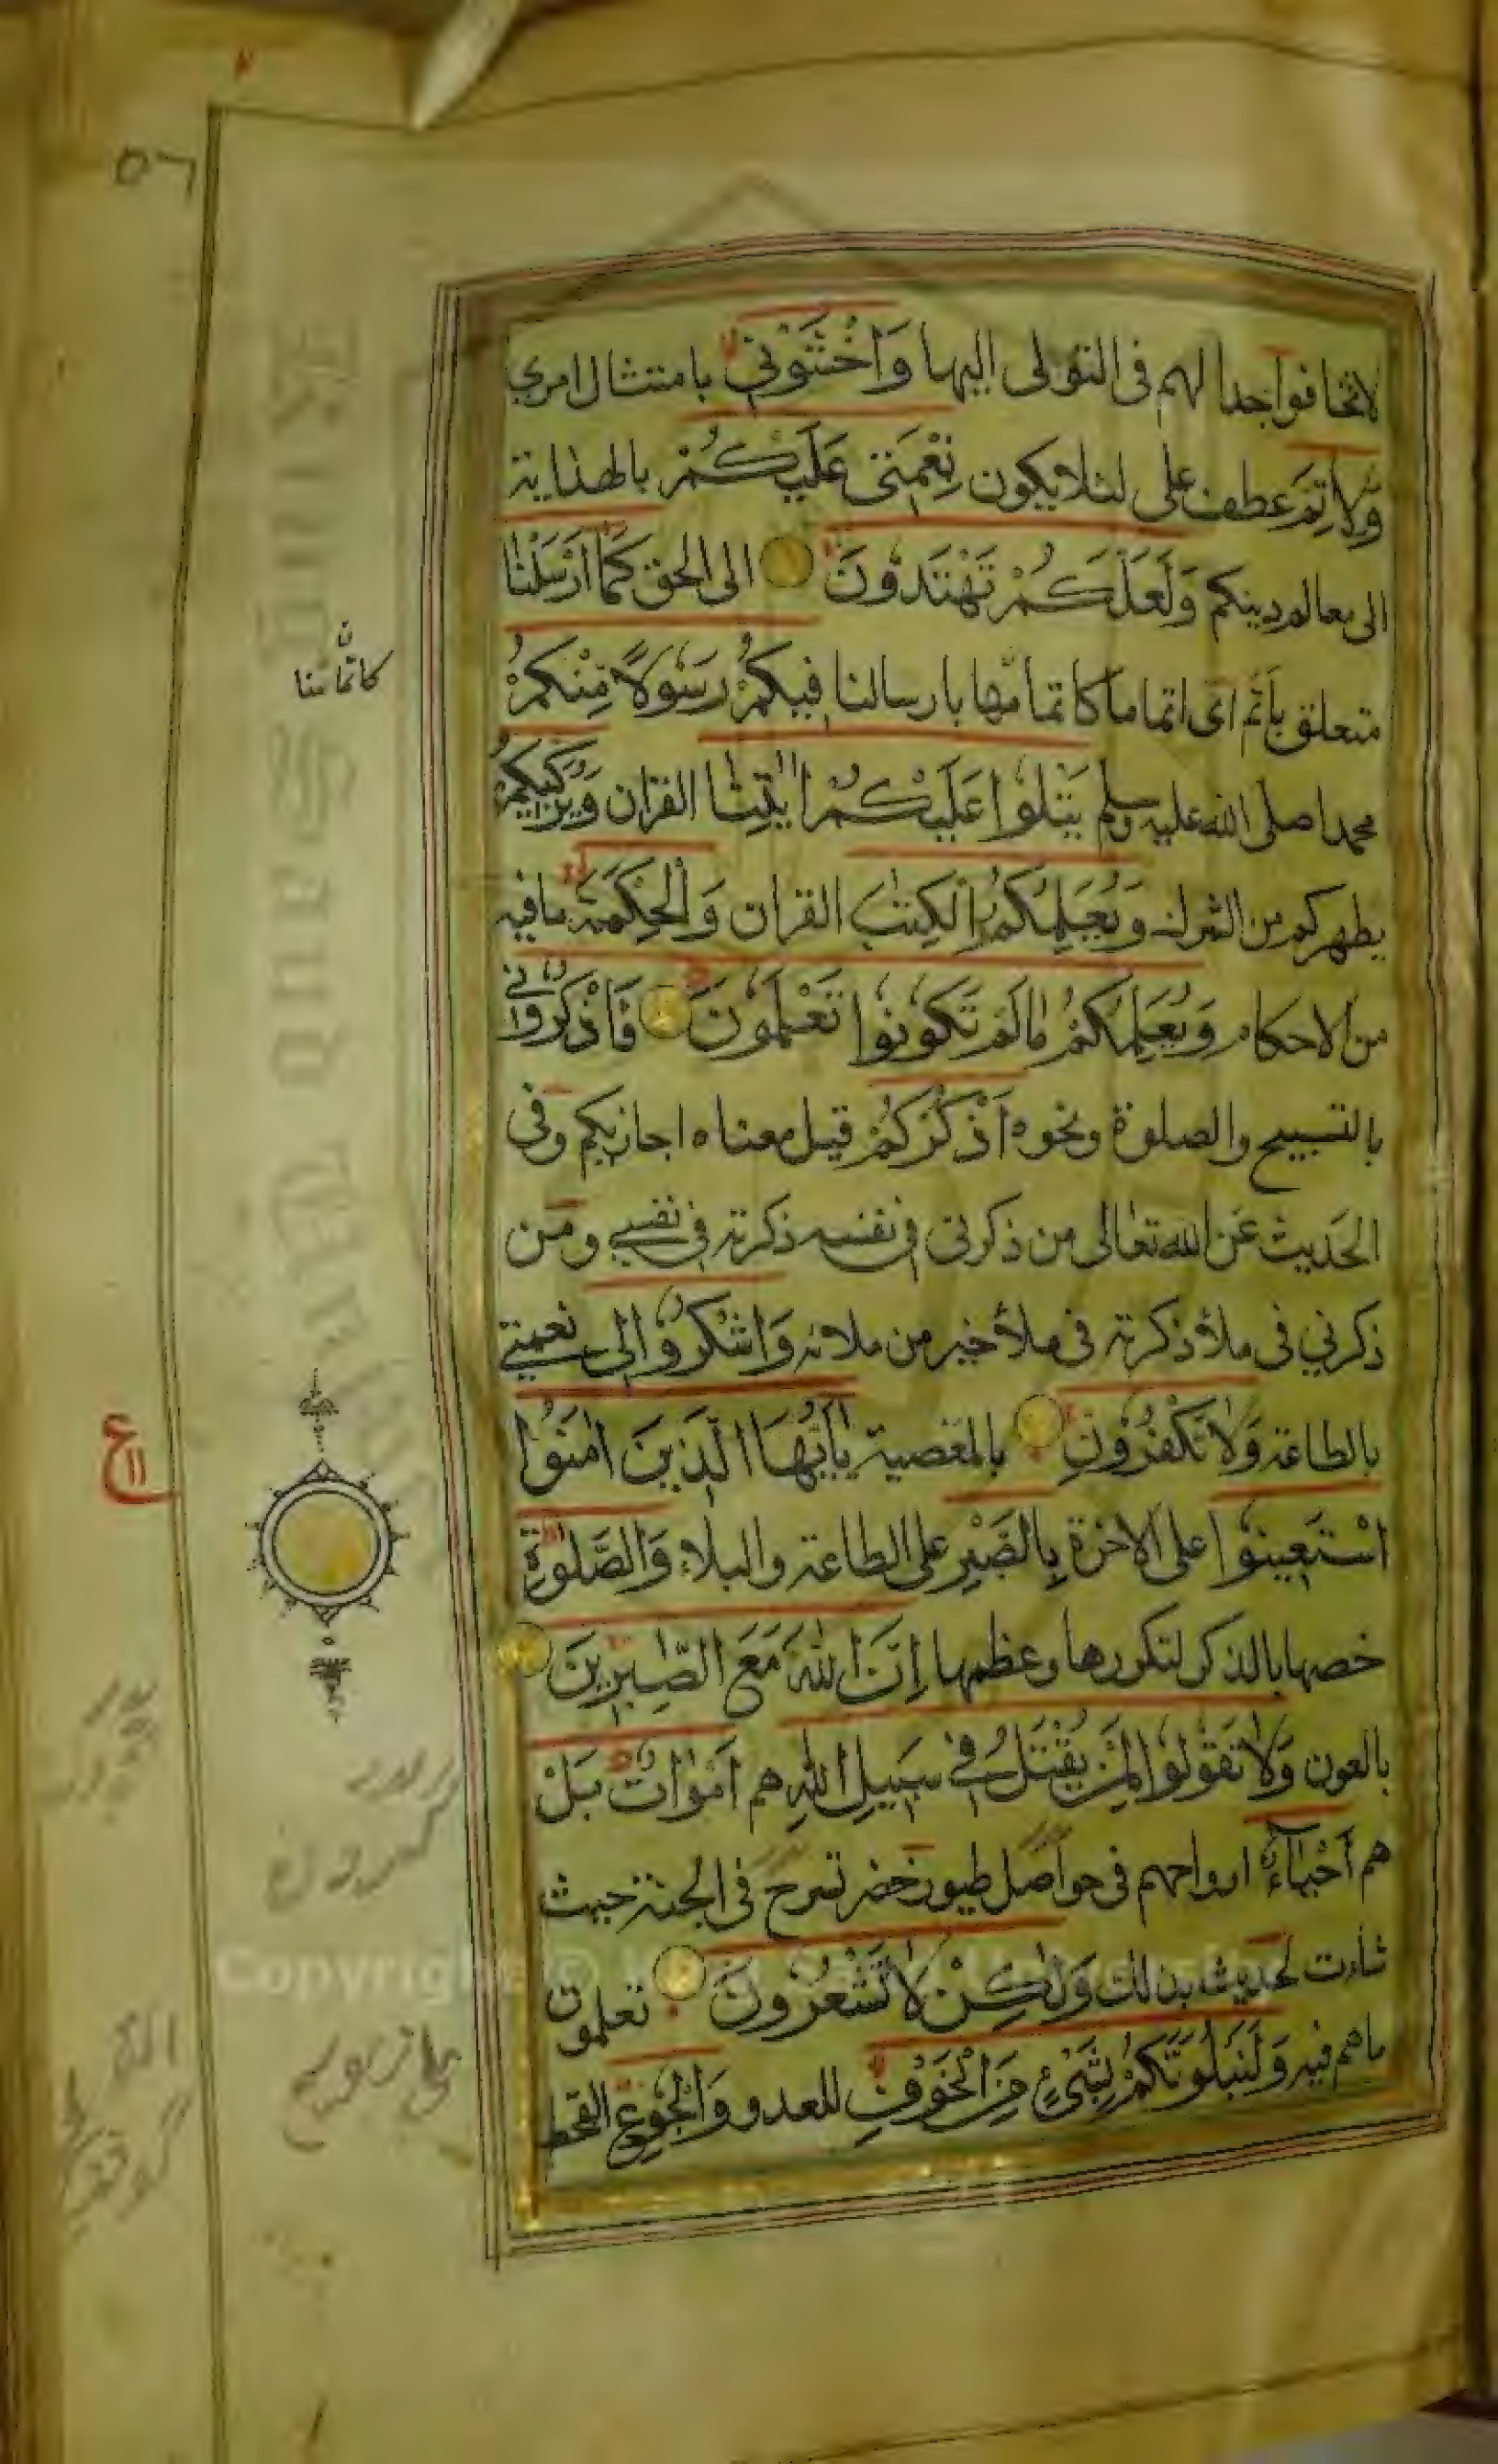 ٥٦
لاتخافوا جدالهم فى التولى اليها وَاخْشَوْنِي بامتثال امري
وَلِاُتِمَّ عطف على لئلا يكون نِعْمَتِى عَلَيْكُمْ بالهداية
الى معالم دينكم وَلَعَلَّكُمْ تَهْتَدُونَ الى الحق كَمَا اَرْسَلْنَا
متعلق بِاُتِمَّ اى اتماما كاتمامها بارسالنا فِيكُمْ رَسُولًا مِّنْكُمْ
كاتمامنا
محمدا صلى الله عليه وسلم يَتْلُوا عَلَيْكُمْ اٰيٰتِنَا القرٰان وَيُزَكِّيكُمْ
يطهركم من الشرك وَيُعَلِّمُكُمُ الْكِتٰبَ القرٰان وَالْحِكْمَةَ مافيه
من الاحكام وَيُعَلِّمُكُمْ مَا لَمْ تَكُونُوا تَعْلَمُونَ فَاذْكُرُونِي
بالتسبيح والصلوة ونحوه اَذْكُرْكُمْ قيل معناه اجازيكم وفى
الحَديث عَن الله تعالى من ذكرنى فى نفسه ذكرته فى نفسي ومَن
ذكرني فى ملأ ذكرته فى ملأ خير من ملائه وَاشْكُرُوا لِى نعمتي
بالطاعة وَلَا تَكْفُرُونِ بالمعصية يٰاَيُّهَا الَّذِينَ اٰمَنُوا
ع ١١
اسْتَعِينُوا على الاخرة بِالصَّبْرِ على الطاعة والبلاء وَالصَّلٰوةِ
خصها بالذكر لتكررها وعظمها اِنَّ اللهَ مَعَ الصّٰبِرِينَ
بالعون وَلَا تَقُولُوا لِمَنْ يُقْتَلُ فِي سَبِيلِ اللهِ هم اَمْوَاتٌ بَلْ
هم اَحْيَاءٌ ارواحهم فى حواصل طيور خضر تسرح فى الجنة حيث
شاءت لحديث بذلك وَلٰكِنْ لَا تَشْعُرُونَ تعلمون
ماهم فيه وَلَنَبْلُوَنَّكُمْ بِشَيْءٍ مِّنَ الْخَوْفِ للعدو وَالْجُوعِ القحط